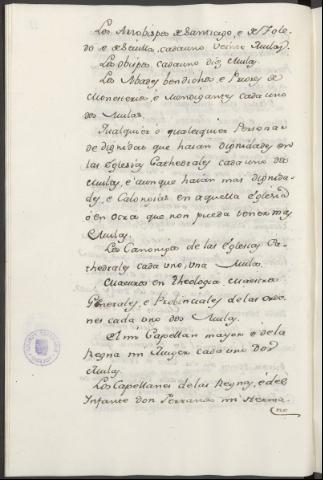 Los Arzobispos de Santiago, e de Tole-
do e de Sevilla, cada uno veinte Mulas.
Los obispos cada uno diez Mulas.
Los Abades bendichos e Priores de
Monesterios, e Monsigantes cada uno
dos Mulas.
Qualquier o qualesquier Personas
de dignidat que haian dignidades en
las Eglesias Cathedrales cada uno dos
Mulas, e aunque haian mas dignida-
des, e Calongias en aquella Eglesia
o en otra que non pueda tener mas
Mulas.
Los Canonigos de las Eglesias Ca-
thedrales cada uno, una Mula.
Maestros en Theologia Maestros
Generales, e Probinciales de las orde-
nes cada uno dos Mulas.
El mi Capellan mayor e de la
Regna mi Muger cada uno Dos
Mulas.
Los Capellanes de las Regnas, e del
Infante don Ferrando mi Herma-
no